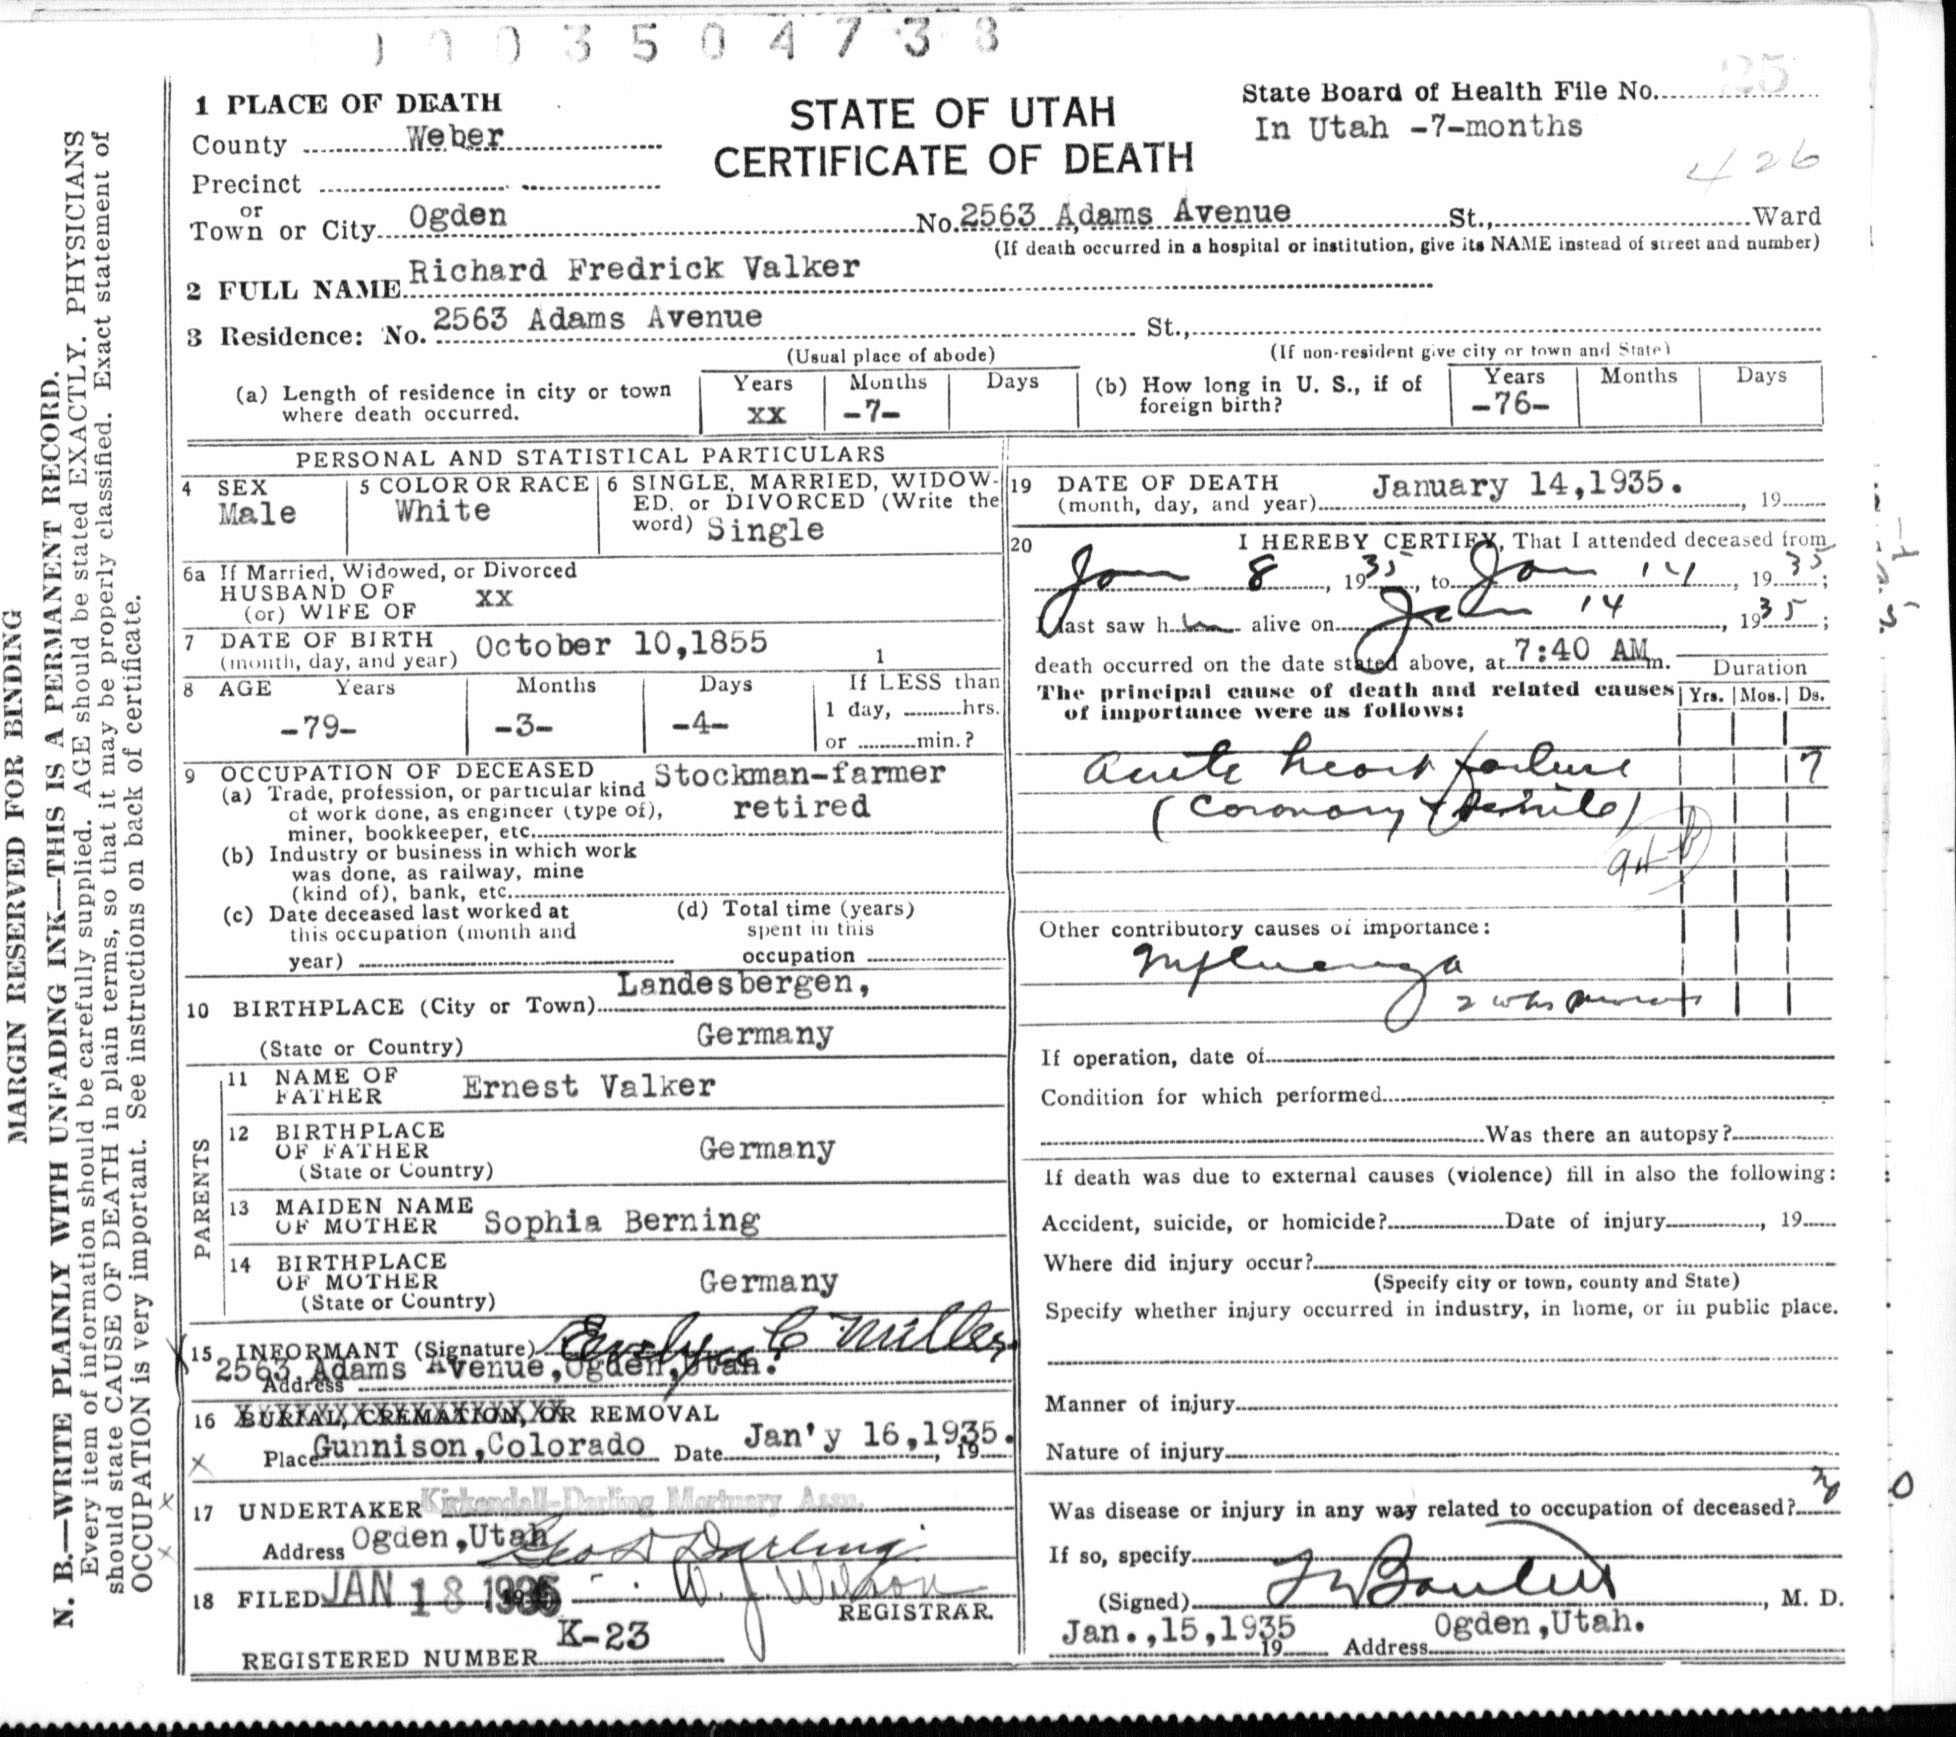 0 0 3 5 0 4 7 3 8
25
1 PLACE OF DEATH
County Weber
Precinct
or
Town or City Ogden No. 2563 Adams Avenue St., Ward
STATE OF UTAH
CERTIFICATE OF DEATH
State Board of Health File No.
In Utah -7-months
426
(If death occurred in a hospital or institution, give its NAME instead of street and number)
2 FULL NAME Richard Fredrick Valker
3 Residence: No. 2563 Adams Avenue St.,
(Usual place of abode) (If non-resident give city or town and State)
(a) Length of residence in city or town where death occurred. Years xx Months -7- Days
(b) How long in U. S., if of foreign birth? Years -76- Months Days
PERSONAL AND STATISTICAL PARTICULARS
4 SEX Male
5 COLOR OR RACE White
6 SINGLE, MARRIED, WIDOW-
ED, or DIVORCED (Write the
word) Single
6a If Married, Widowed, or Divorced
HUSBAND OF
(or) WIFE OF xx
7 DATE OF BIRTH October 10,1855
(month, day, and year)
1
8 AGE Years Months Days If LESS than
-79- -3- -4- 1 day, hrs.
or min.?
9 OCCUPATION OF DECEASED Stockman-farmer
(a) Trade, profession, or particular kind
of work done, as engineer (type of), retired
miner, bookkeeper, etc.
(b) Industry or business in which work
was done, as railway, mine
(kind of), bank, etc.
(c) Date deceased last worked at
this occupation (month and
year)
(d) Total time (years)
spent in this
occupation
10 BIRTHPLACE (City or Town) Landesbergen,
(State or Country) Germany
PARENTS
11 NAME OF
FATHER Ernest Valker
12 BIRTHPLACE
OF FATHER Germany
(State or Country)
13 MAIDEN NAME
OF MOTHER Sophia Berning
14 BIRTHPLACE
OF MOTHER Germany
(State or Country)
15 INFORMANT (Signature) Evelyn C Miller
2563 Adams Avenue,Ogden,Utah.
Address
16 BURIAL, CREMATION, OR REMOVAL
Place Gunnison,Colorado Date Jan'y 16,1935. , 19
17 UNDERTAKER Kirkendall-Darling Mortuary Assn.
Address Ogden,Utah Geo D Darling
18 FILED JAN 18 1935 W. J. Wilson
REGISTRAR.
REGISTERED NUMBER K-23
19 DATE OF DEATH January 14,1935.
(month, day, and year) , 19
20 I HEREBY CERTIFY, That I attended deceased from
Jan 8, 1935, to Jan 14, 1935;
I last saw him alive on Jan 14, 1935;
death occurred on the date stated above, at 7:40 AM m.
Duration
The principal cause of death and related causes Yrs. Mos. Ds.
of importance were as follows:
Acute heart failure 7
(Coronary & senile)
Other contributory causes of importance:
Influenza
2 wks
If operation, date of
Condition for which performed
Was there an autopsy?
If death was due to external causes (violence) fill in also the following:
Accident, suicide, or homicide? Date of injury , 19
Where did injury occur?
(Specify city or town, county and State)
Specify whether injury occurred in industry, in home, or in public place.
Manner of injury
Nature of injury
Was disease or injury in any way related to occupation of deceased? no
If so, specify
(Signed) , M. D.
Jan.,15,1935 19 Address Ogden,Utah.
MARGIN RESERVED FOR BINDING
N. B.—WRITE PLAINLY WITH UNFADING INK—THIS IS A PERMANENT RECORD.
Every item of information should be carefully supplied. AGE should be stated EXACTLY. PHYSICIANS
should state CAUSE OF DEATH in plain terms, so that it may be properly classified. Exact statement of
OCCUPATION is very important. See instructions on back of certificate.